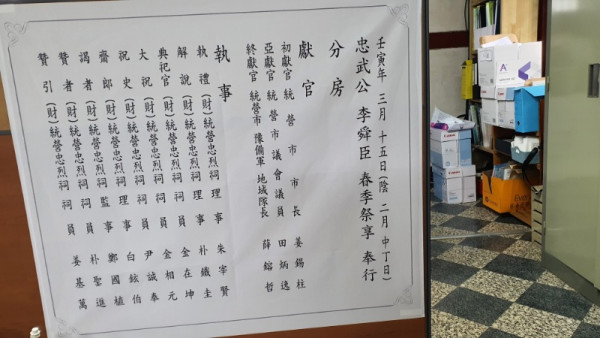 壬寅年 三月 十五日(陰 二月 中丁日)
忠武公 李舜臣 春季祭享 奉行
分房
獻官
初獻官 統營市市長 姜錫柱
亞獻官 統營市議會議員 田炳逸
終獻官 統營市 豫備軍 地域隊長 薛鎔哲
執事
執禮 (財)統營忠烈祠 理事 朱宰賢
解說 (財)統營忠烈祠 理事 朴鐵圭
典祀官 (財)統營忠烈祠 祠員 金在坤
大祝 (財)統營忠烈祠 祠員 金相元
祝史 (財)統營忠烈祠 祠員 尹誠奉
齋郞 (財)統營忠烈祠 理事 白鉉伯
謁者 (財)統營忠烈祠 監事 鄭國植
贊者 (財)統營忠烈祠 祠員 朴聖進
贊引 (財)統營忠烈祠 祠員 姜基萬